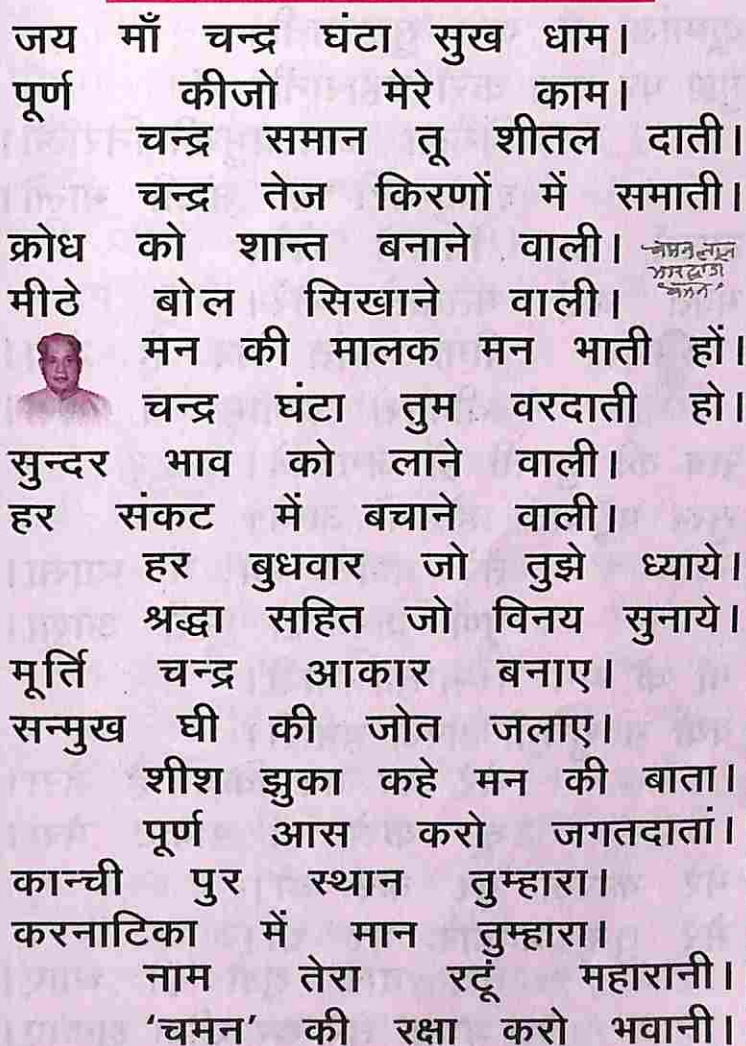 जय माँ चन्द्र घंटा सुख धाम।
पूर्ण कीजो मेरे काम।
चन्द्र समान तू शीतल दाती।
चन्द्र तेज किरणों में समाती।
क्रोध को शान्त बनाने वाली।
चमन लाल
भारद्वाज
'चमन'
मीठे बोल सिखाने वाली।
मन की मालक मन भाती हों।
चन्द्र घंटा तुम वरदाती हो।
सुन्दर भाव को लाने वाली।
हर संकट में बचाने वाली।
हर बुधवार जो तुझे ध्याये।
श्रद्धा सहित जो विनय सुनाये।
मूर्ति चन्द्र आकार बनाए।
सन्मुख घी की जोत जलाए।
शीश झुका कहे मन की बाता।
पूर्ण आस करो जगतदातां।
कान्ची पुर स्थान तुम्हारा।
करनाटिका में मान तुम्हारा।
नाम तेरा रटूं महारानी।
'चमन' की रक्षा करो भवानी।